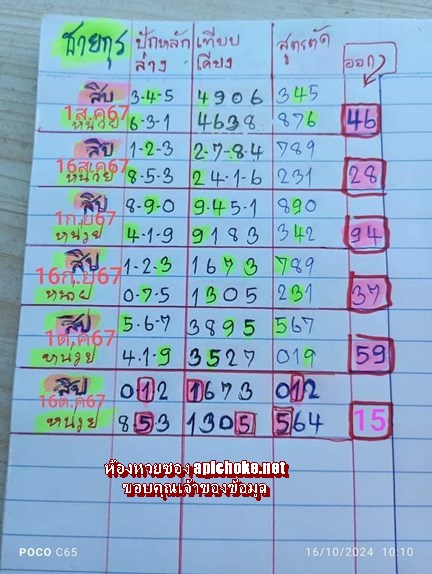 ชายทุร ปักหลัก เทียบ สูตรตัด ออก
ล่าง เคียง
สิบ 3-4-5 4906 345
1ส.ค67
หน่วย 6-3-1 4638 876 46
สิบ 1-2-3 2-7-8-4 789
16ส.ค67
หน่วย 8-5-3 24-1-6 231 28
สิบ 8-9-0 9-45-1 890
1ก.ย67
หน่วย 4-1-9 9183 342 94
สิบ 1-2-3 1673 789
16ก.ย67
หน่วย 0-7-5 1305 231 37
สิบ 5-6-7 3895 567
1ต.ค67
หน่วย 4-1-9 3527 019 59
สิบ 012 1673 012
16ต.ค67
หน่วย 8-53 1305 564 15
ห้องหวยซอง apichoke.net
ขอบคุณเจ้าของข้อมูล
POCO C65 16/10/2024 10:10